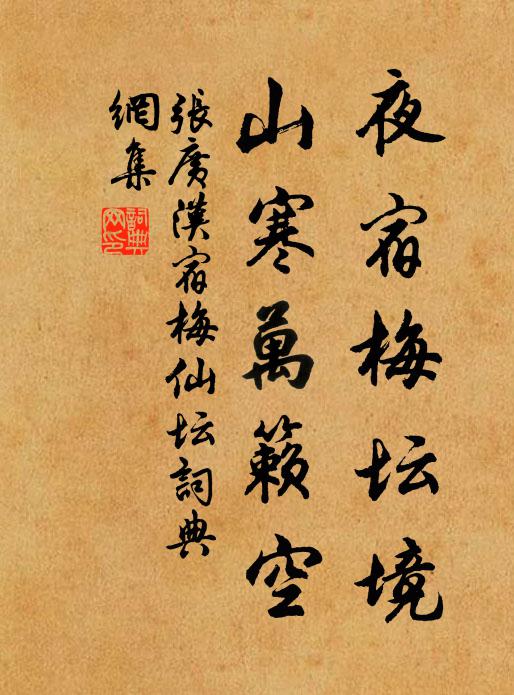 夜宿梅坛境
山寒萬籁空
張廣漢宿梅仙坛詞典
網集
詞典
网印